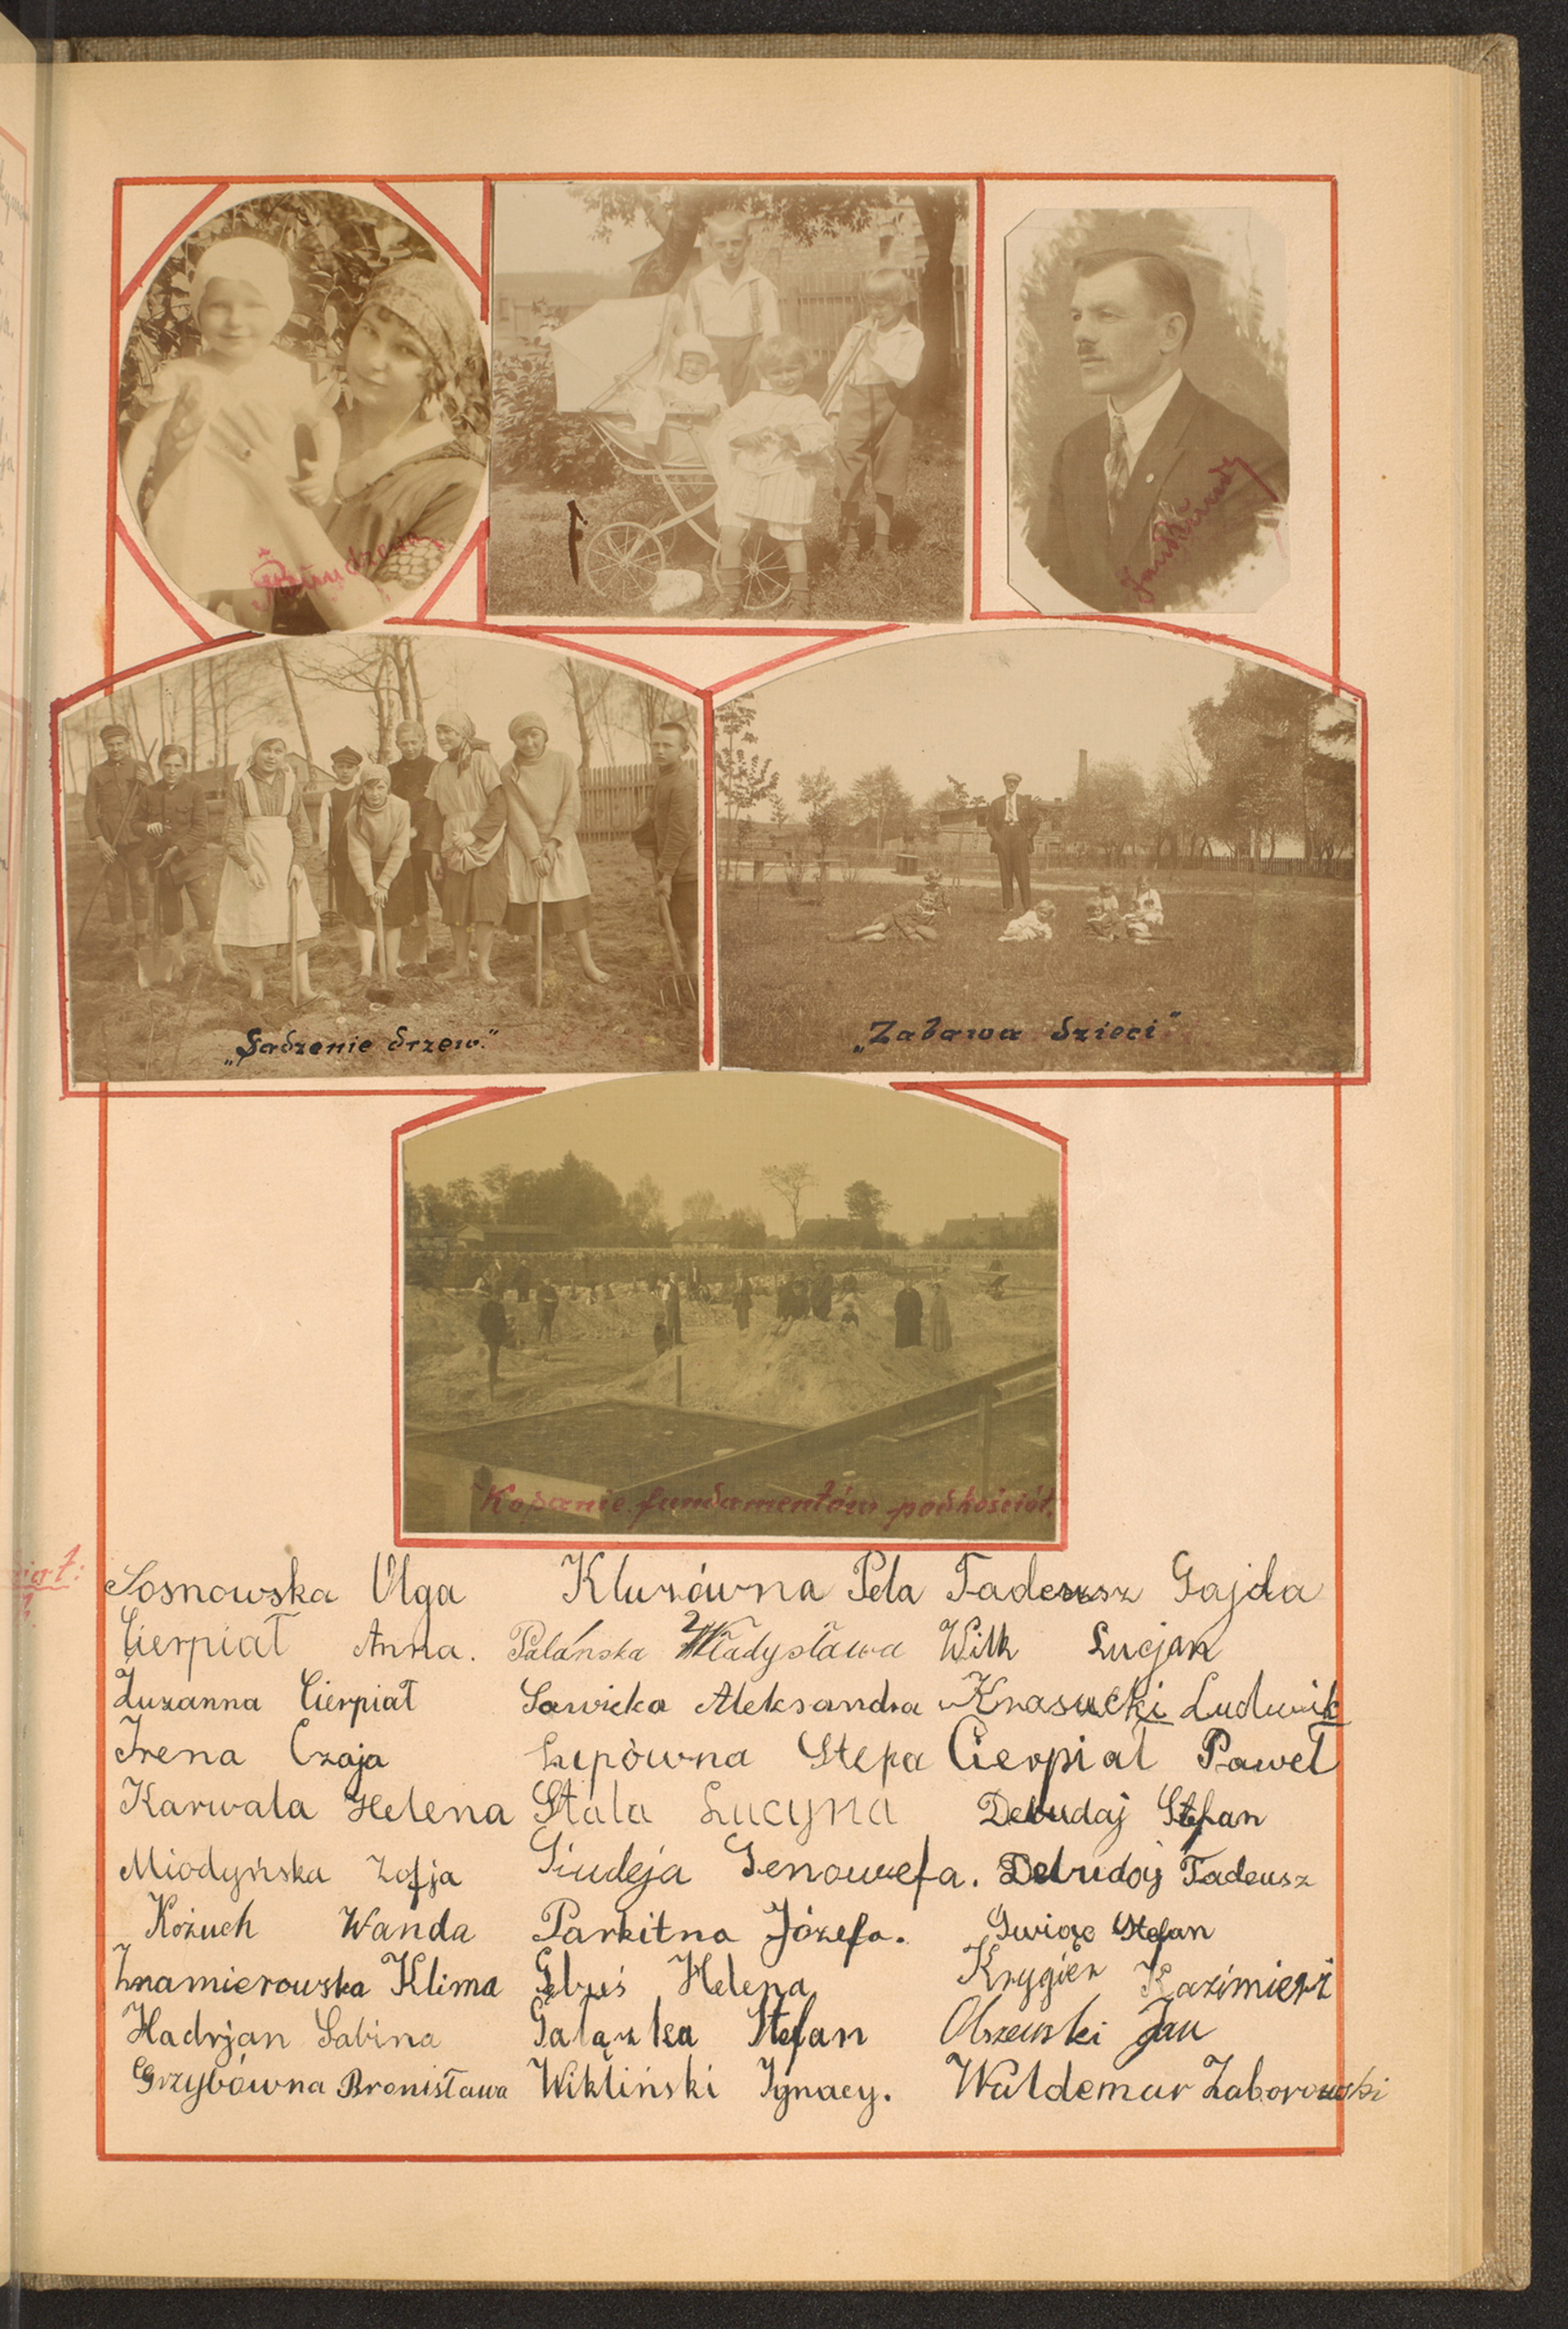 „Sadzenie drzew."
„Zabawa dzieci"
Kopanie fundamentów pod kościół.
Sosnowska Olga Kluzówna Pela Tadeusz Gajda
Cierpiał Anna. Palańska Władysława Wilk Lucjan
Zuzanna Cierpiał Sawicka Aleksandra Krasucki Ludwik
Irena Czaja Lupówna Stefa Cierpiał Paweł
Karwala Helena Stala Lucyna Debudaj Stefan
Miodyńska Zofja Siudeja Genowefa. Debudaj Tadeusz
Kożuch Wanda Parkitna Józefa. Stefan
Znamierowska Klima Gębuś Helena Krygier Kazimierz
Hadrjan Sabina Gałązka Stefan Olszewski Jan
Grzybówna Bronisława Wikliński Ignacy. Waldemar Zaborowski